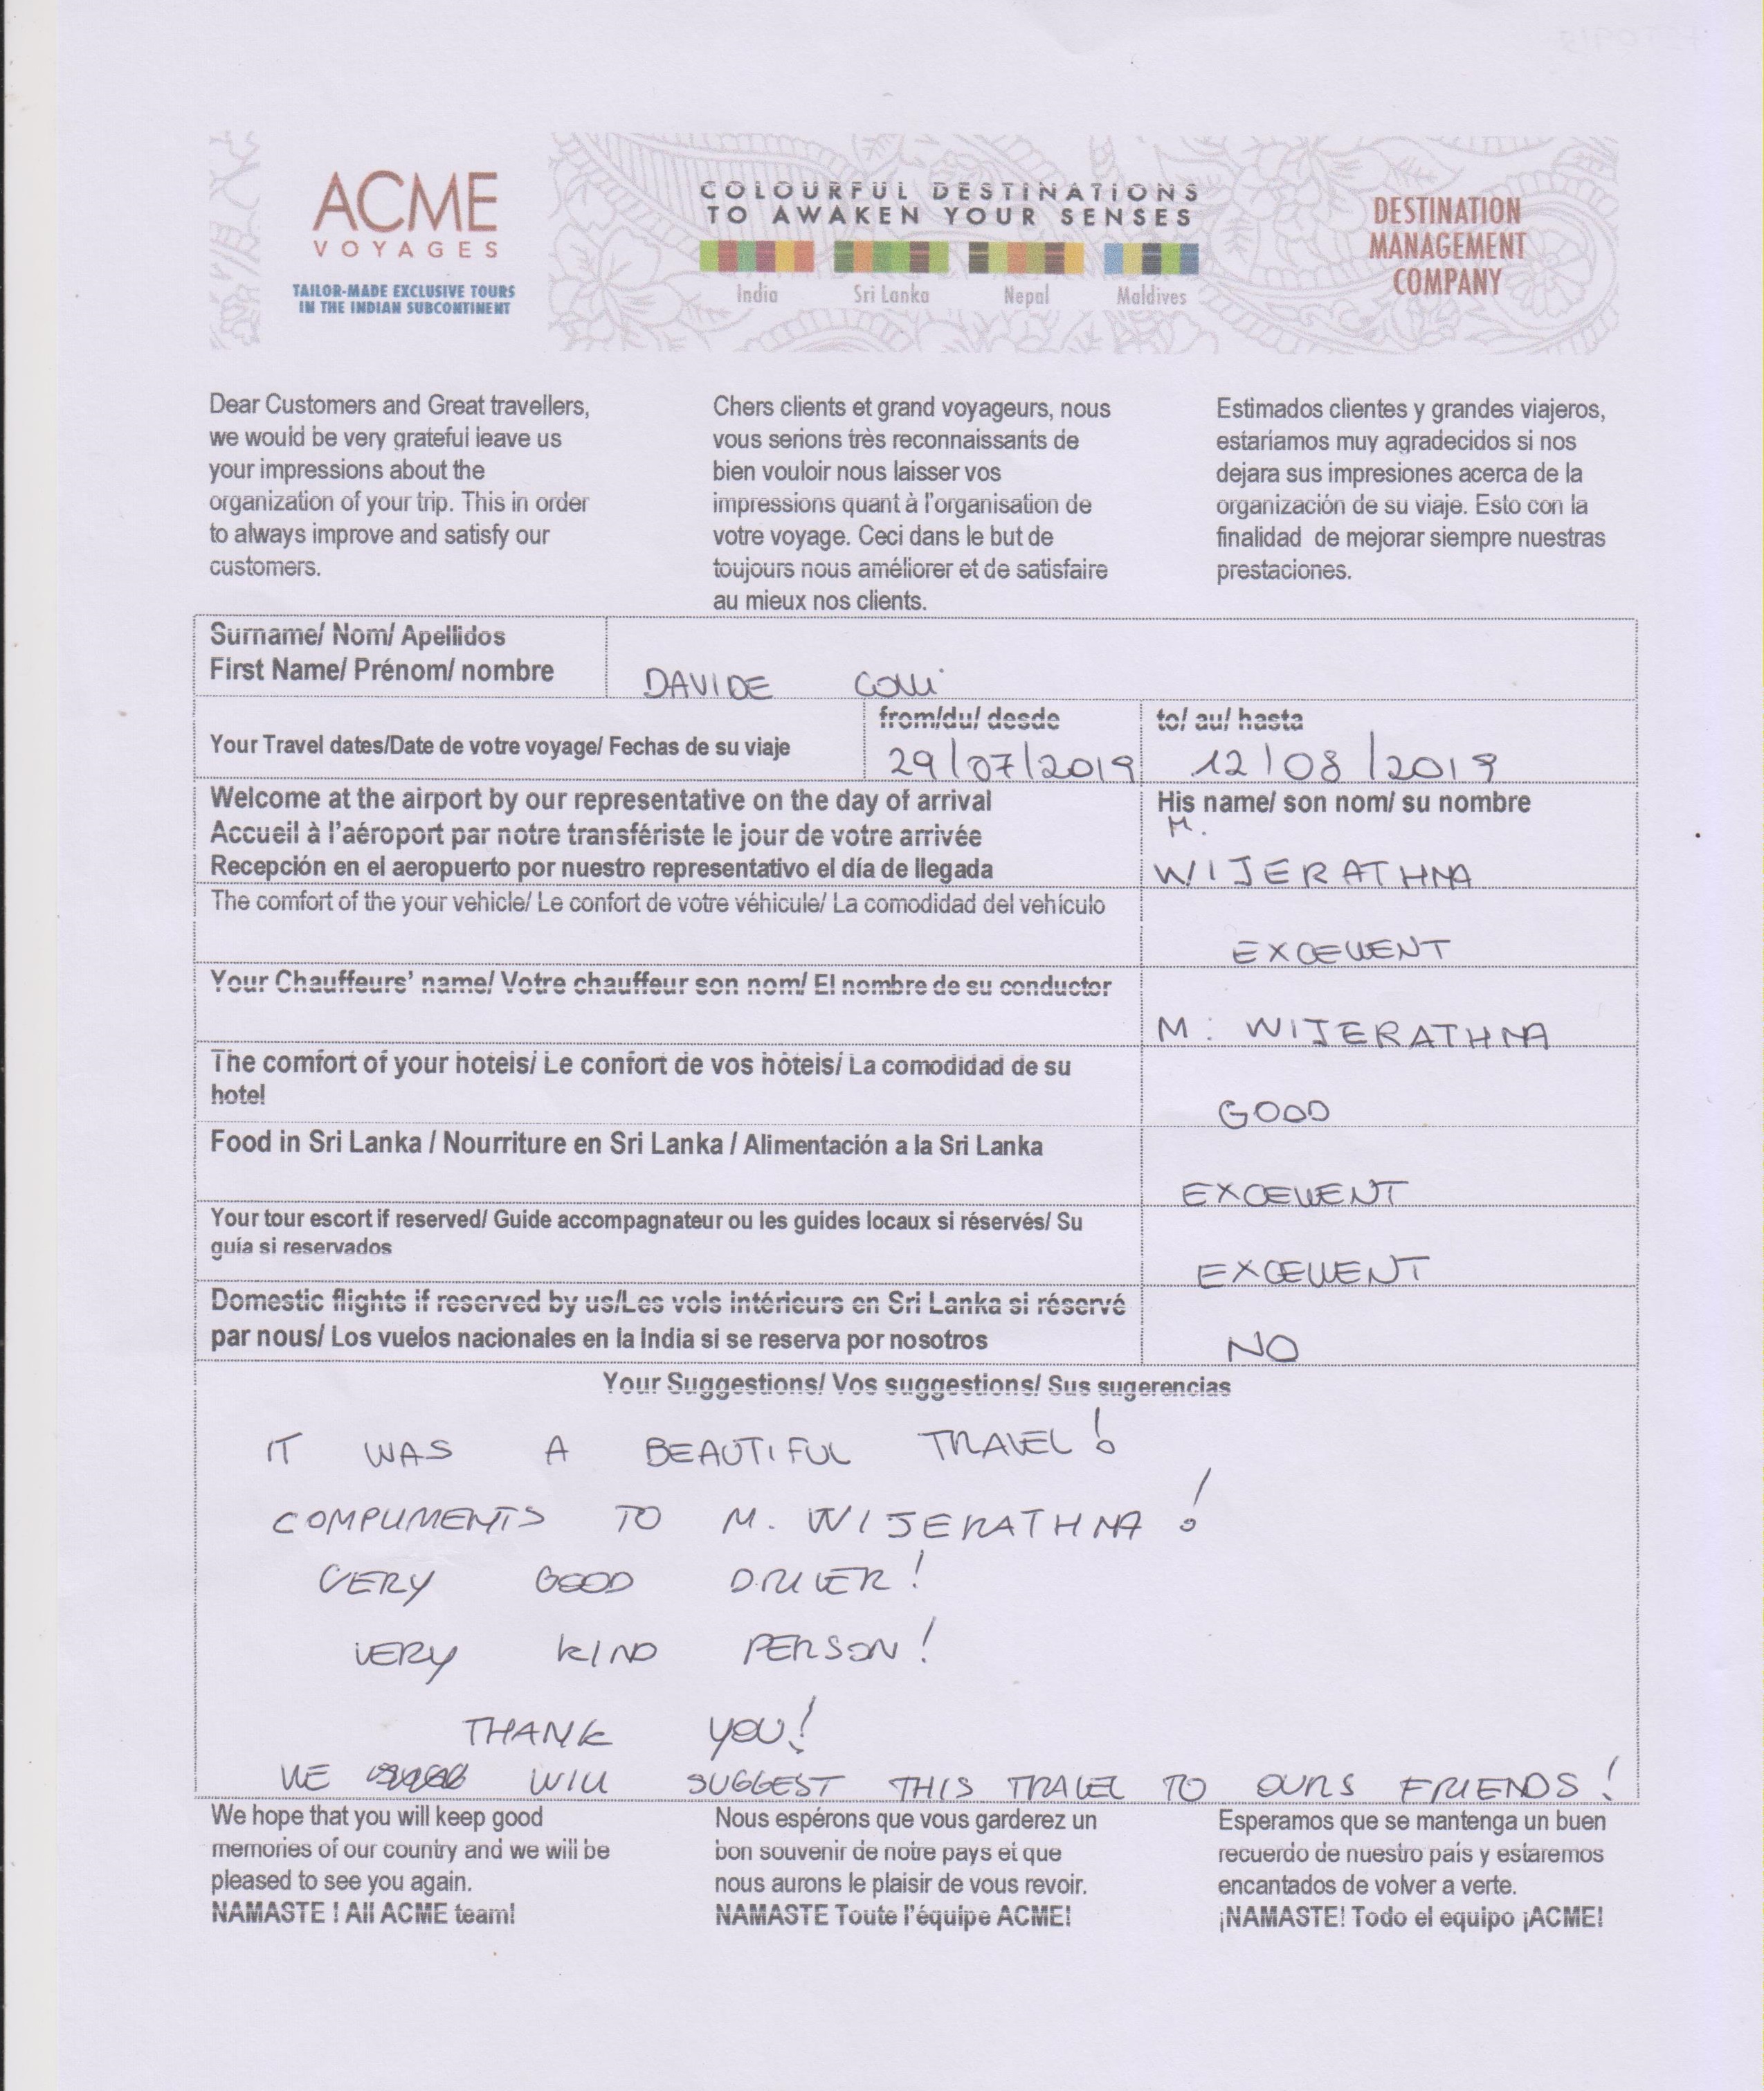 ACME
VOYAGES
TAILOR-MADE EXCLUSIVE TOURS
IN THE INDIAN SUBCONTINENT
COLOURFUL DESTINATIONS
TO AWAKEN YOUR SENSES
India Sri Lanka Nepal Maldives
DESTINATION
MANAGEMENT
COMPANY
Dear Customers and Great travellers,
we would be very grateful leave us
your impressions about the
organization of your trip. This in order
to always improve and satisfy our
customers.
Chers clients et grand voyageurs, nous
vous serions très reconnaissants de
bien vouloir nous laisser vos
impressions quant à l'organisation de
votre voyage. Ceci dans le but de
toujours nous améliorer et de satisfaire
au mieux nos clients.
Estimados clientes y grandes viajeros,
estaríamos muy agradecidos si nos
dejara sus impresiones acerca de la
organización de su viaje. Esto con la
finalidad de mejorar siempre nuestras
prestaciones.
Surname/ Nom/ Apellidos
First Name/ Prénom/ nombre
DAVIDE COLLI
Your Travel dates/Date de votre voyage/ Fechas de su viaje
from/du/ desde
29/07/2019
to/ au/ hasta
12/08/2019
Welcome at the airport by our representative on the day of arrival
Accueil à l'aéroport par notre transfériste le jour de votre arrivée
Recepción en el aeropuerto por nuestro representativo el día de llegada
His name/ son nom/ su nombre
M.
WIJERATHNA
The comfort of the your vehicle/ Le confort de votre véhicule/ La comodidad del vehículo
EXCELLENT
Your Chauffeurs' name/ Votre chauffeur son nom/ El nombre de su conductor
M. WIJERATHNA
The comfort of your hotels/ Le confort de vos hôtels/ La comodidad de su
hotel
GOOD
Food in Sri Lanka / Nourriture en Sri Lanka / Alimentación a la Sri Lanka
EXCELLENT
Your tour escort if reserved/ Guide accompagnateur ou les guides locaux si réservés/ Su
guía si reservados
EXCELLENT
Domestic flights if reserved by us/Les vols intérieurs en Sri Lanka si réservé
par nous/ Los vuelos nacionales en la India si se reserva por nosotros
NO
Your Suggestions/ Vos suggestions/ Sus sugerencias
IT WAS A BEAUTIFUL TRAVEL!
COMPLIMENTS TO M. WIJERATHNA!
VERY GOOD DRIVER!
VERY KIND PERSON!
THANK YOU!
WE WILL SUGGEST THIS TRAVEL TO OURS FRIENDS!
We hope that you will keep good
memories of our country and we will be
pleased to see you again.
NAMASTE ! All ACME team!
Nous espérons que vous garderez un
bon souvenir de notre pays et que
nous aurons le plaisir de vous revoir.
NAMASTE Toute l'équipe ACME!
Esperamos que se mantenga un buen
recuerdo de nuestro país y estaremos
encantados de volver a verte.
¡NAMASTE! Todo el equipo ¡ACME!